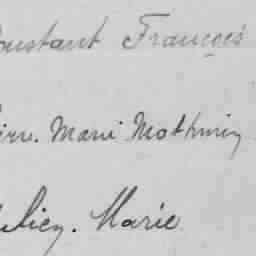 Constant François
Marie Mathurin
Julien. Marie